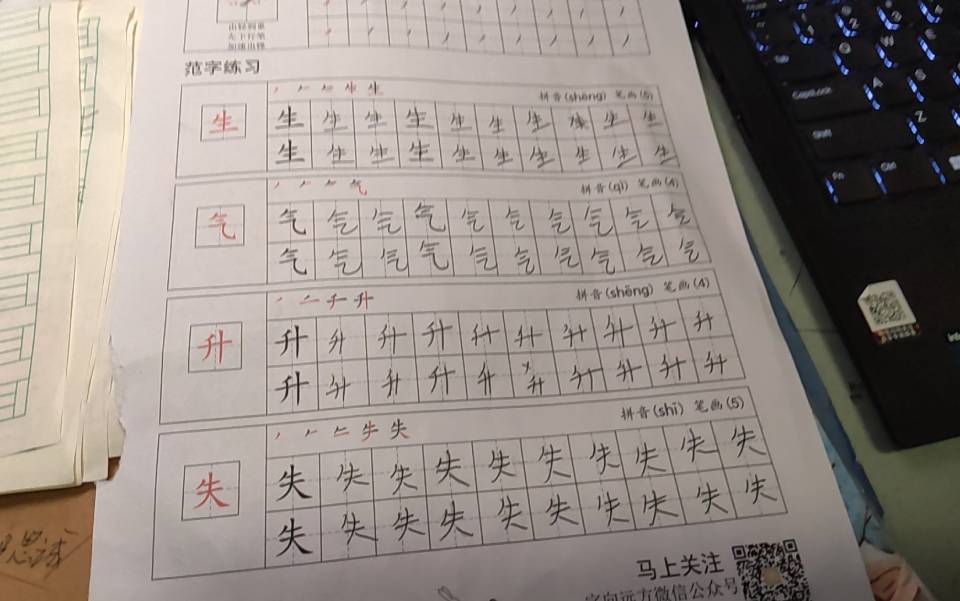 出轻到重
左下行笔
加速出锋
范字练习
拼音(shēng) 笔画(5)
生 生 生 生 生 生 生 生 生 生 生
生 生 生 生 生 生 生 生 生 生
拼音(qì) 笔画(4)
气 气 气 气 气 气 气 气 气 气 气
气 气 气 气 气 气 气 气 气 气
拼音(shēng) 笔画(4)
升 升 升 升 升 升 升 升 升 升 升
升 升 升 升 升 升 升 升 升 升
拼音(shī) 笔画(5)
失 失 失 失 失 失 失 失 失 失 失
失 失 失 失 失 失 失 失 失 失
马上关注
字向远方微信公众号
CapsLock
Shift
Fn
Ctrl
Q
W
E
A
S
Z